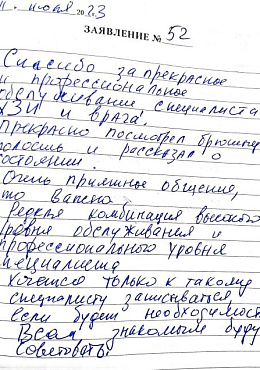 11. июля 2023
ЗАЯВЛЕНИЕ № 52
Спасибо за прекрасное
и профессиональное
обслуживание специалиста
УЗИ и врача!
Прекрасно посмотрел брюшную
полость и рассказал о
состоянии.
Очень приятное общение,
что важно.
Редкая комбинация высокого
уровня обслуживания и
профессионального уровня
специалиста
Хочется только к такому
специалисту записываться,
если будет необходимость
Всем знакомым буду
советовать!